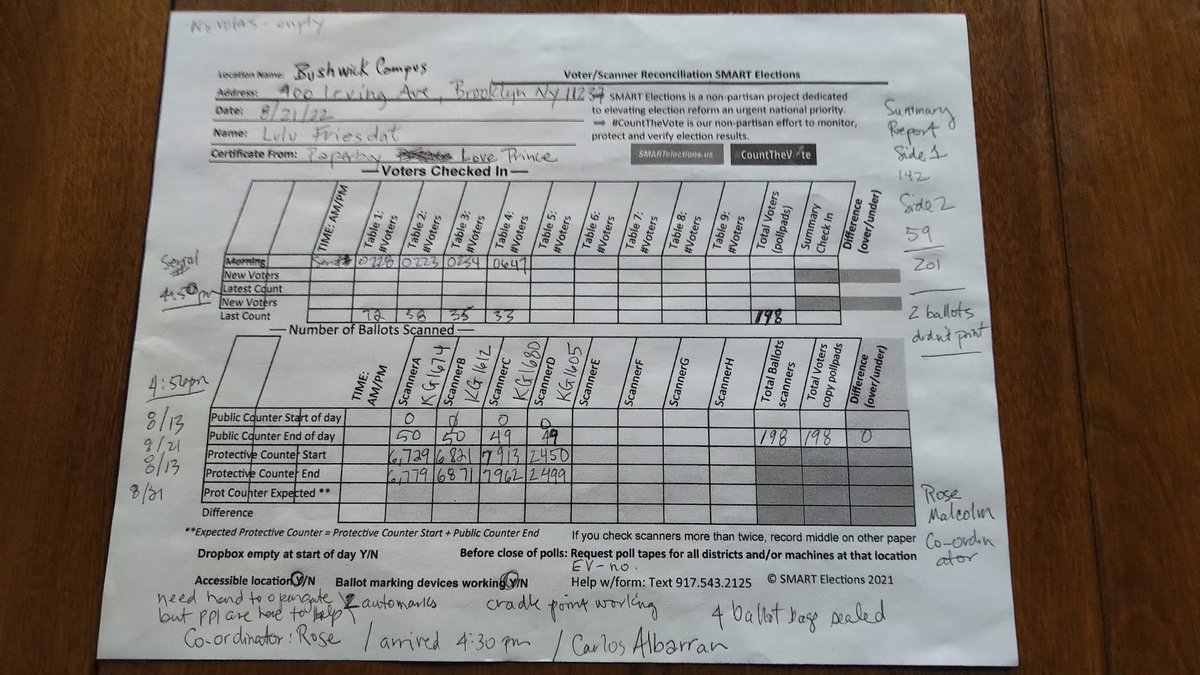 No votes - empty
Location Name: Bushwick Campus
Address: 400 Irving Ave, Brooklyn NY 11237
Date: 8/21/22
Name: Lulu Friesdat
Certificate From: Paperboy Love Prince
Voter/Scanner Reconciliation SMART Elections
SMART Elections is a non-partisan project dedicated
to elevating election reform an urgent national priority.
⇒ #CountTheVote is our non-partisan effort to monitor,
protect and verify election results.
SMARTelections.us CountTheVote
Summary
Report
Side 1
142
Side 2
59
201
2 ballots
didn't print
Voters Checked In
TIME: AM/PM Table 1: #Voters Table 2: #Voters Table 3: #Voters Table 4: #Voters Table 5: #Voters Table 6: #Voters Table 7: #Voters Table 8: #Voters Table 9: #Voters Total Voters (pollpads) Summary Check In Difference (over/under)
Serial # Morning Serial # 0228 0223 0234 0647
New Voters
Latest Count
4:50 pm New Voters
Last Count 72 58 35 33 198
Number of Ballots Scanned
4:56pm TIME: AM/PM ScannerA KG1674 ScannerB KG1612 ScannerC KG1680 ScannerD KG1605 ScannerE ScannerF ScannerG ScannerH Total Ballots scanners Total Voters copy pollpads Difference (over/under)
8/13 Public Counter Start of day 0 0 0 0
8/21 Public Counter End of day 50 50 49 49 198 198 0
8/13 Protective Counter Start 6,729 6821 7913 2450
8/21 Protective Counter End 6,779 6871 7962 2499
Prot Counter Expected **
Difference
Rose
Malcolm
Co-ordin
ator
**Expected Protective Counter = Protective Counter Start + Public Counter End
If you check scanners more than twice, record middle on other paper
Dropbox empty at start of day Y/N
Before close of polls: Request poll tapes for all districts and/or machines at that location
EV-no.
Accessible location Y/N Ballot marking devices working Y/N Help w/form: Text 917.543.2125 © SMART Elections 2021
need hand to open gate
but PPl are here to help
2 automarks cradle point working 4 ballot bags sealed
Co-ordinator: Rose / arrived 4:30 pm / Carlos Albarran